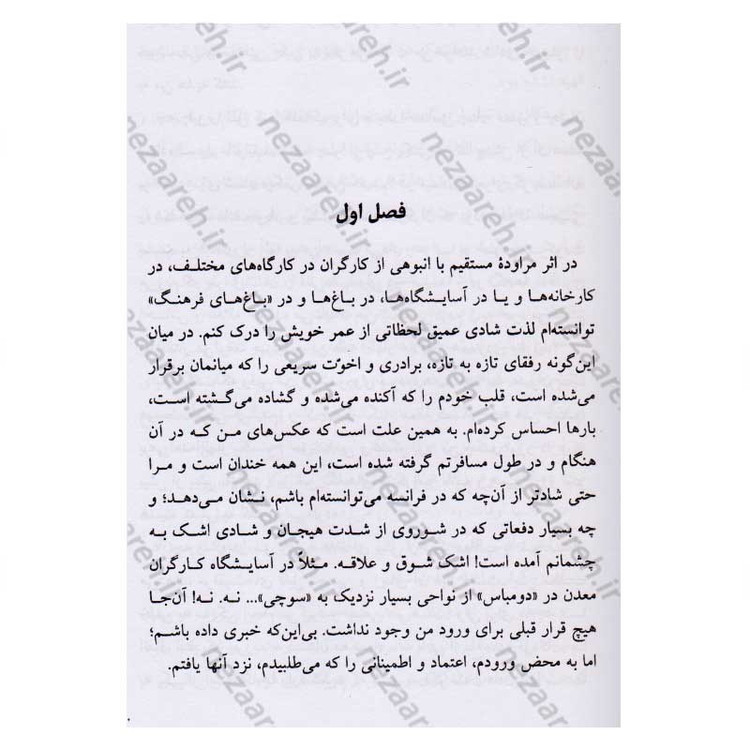 فصل اول
در اثر مراودهٔ مستقیم با انبوهی از کارگران در کارگاه‌های مختلف، در
کارخانه‌ها و یا در آسایشگاه‌ها، در باغ‌ها و در «باغ‌های فرهنگ»
توانسته‌ام لذت شادی عمیق لحظاتی از عمر خویش را درک کنم. در میان
این‌گونه رفقای تازه به تازه، برادری و اخوّت سریعی را که میانمان برقرار
می‌شده است، قلب خودم را که آکنده می‌شده و گشاده می‌گشته است،
بارها احساس کرده‌ام. به همین علت است که عکس‌های من که در آن
هنگام و در طول مسافرتم گرفته شده است، این همه خندان است و مرا
حتی شادتر از آن‌چه که در فرانسه می‌توانسته‌ام باشم، نشان می‌دهد؛ و
چه بسیار دفعاتی که در شوروی از شدت هیجان و شادی اشک به
چشمانم آمده است! اشک شوق و علاقه. مثلاً در آسایشگاه کارگران
معدن در «دومباس» از نواحی بسیار نزدیک به «سوچی»... نه. نه! آن‌جا
هیچ قرار قبلی برای ورود من وجود نداشت. بی‌این‌که خبری داده باشم؛
اما به محض ورودم، اعتماد و اطمینانی را که می‌طلبیدم، نزد آنها یافتم.
nezaareh.ir